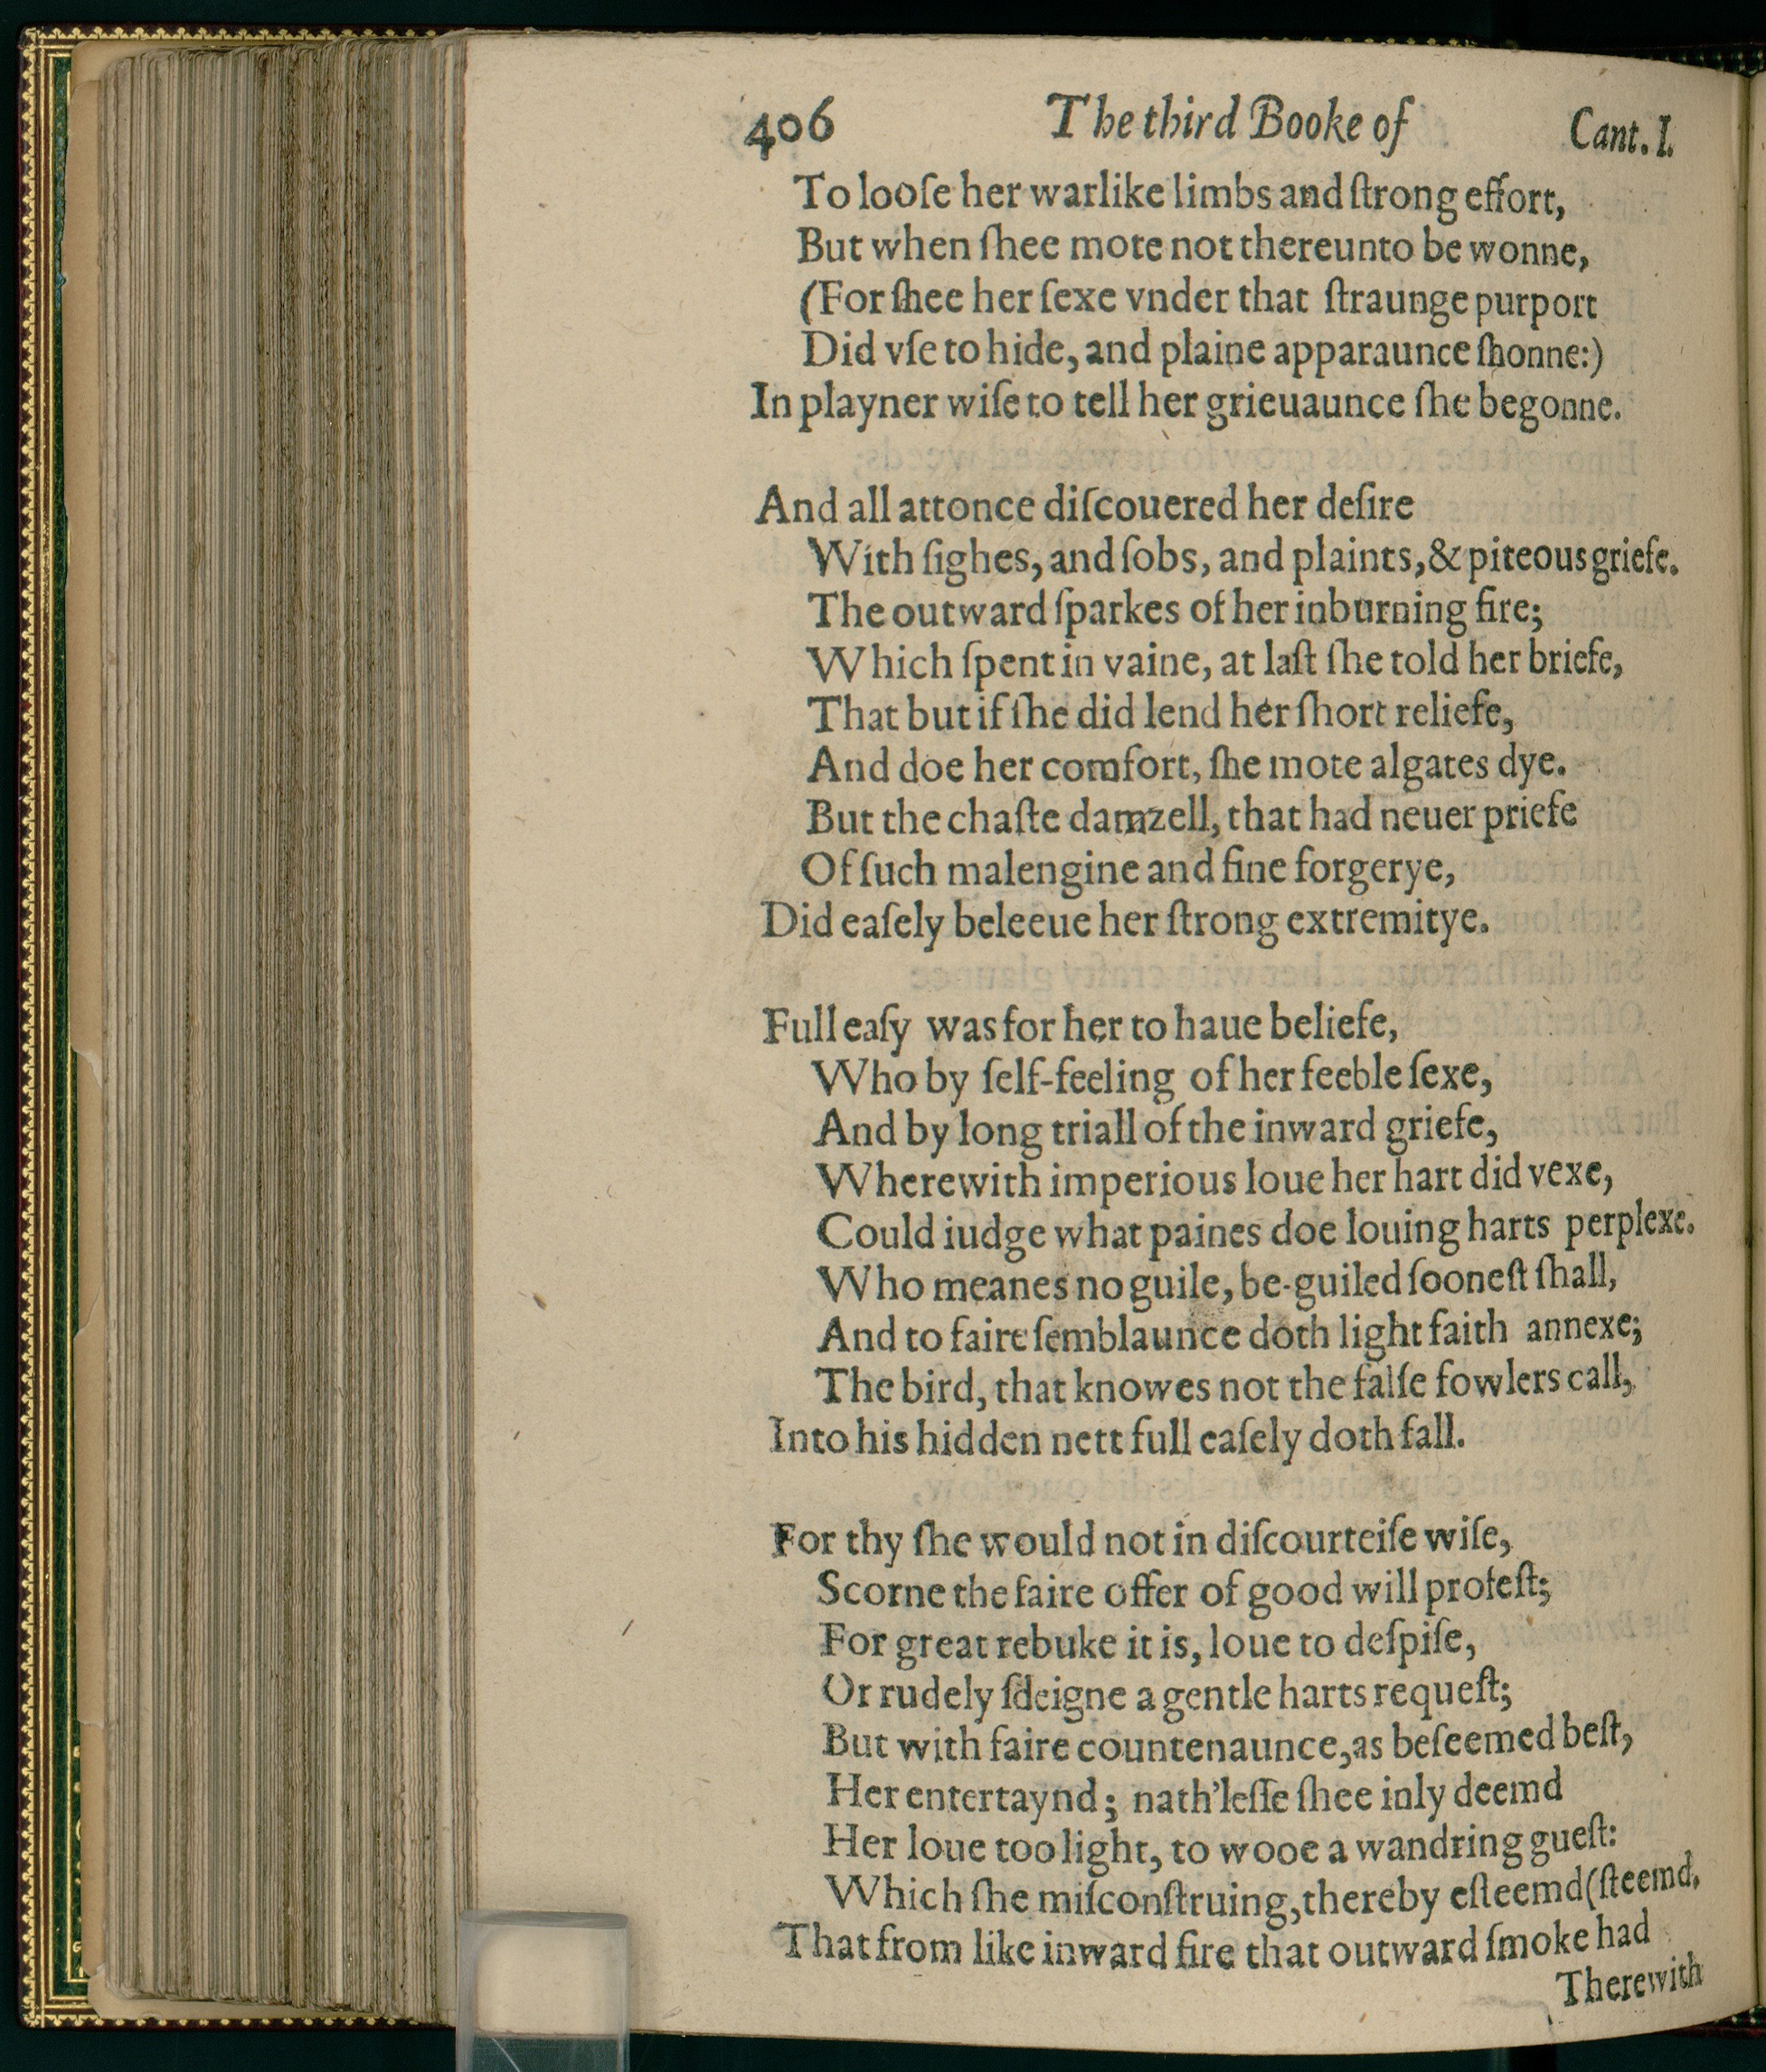 406 The third Booke of Cant. I.
To looſe her warlike limbs and ſtrong effort,
But when ſhee mote not thereunto be wonne,
(For ſhee her ſexe vnder that ſtraunge purport
Did vſe to hide, and plaine apparaunce ſhonne:)
In playner wiſe to tell her grieuaunce ſhe begonne.
And all attonce diſcouered her deſire
With ſighes, and ſobs, and plaints, & piteous griefe.
The outward ſparkes of her inburning fire;
Which ſpent in vaine, at laſt ſhe told her briefe,
That but if ſhe did lend her ſhort reliefe,
And doe her comfort, ſhe mote algates dye.
But the chaſte damzell, that had neuer priefe
Of ſuch malengine and fine forgerye,
Did eaſely beleeue her ſtrong extremitye.
Full eaſy was for her to haue beliefe,
Who by ſelf-feeling of her feeble ſexe,
And by long triall of the inward griefe,
Wherewith imperious loue her hart did vexe,
Could iudge what paines doe louing harts perplexe.
Who meanes no guile, be-guiled ſooneſt ſhall,
And to faire ſemblaunce doth light faith annexe;
The bird, that knowes not the falſe fowlers call,
Into his hidden nett full eaſely doth fall.
For thy ſhe would not in diſcourteiſe wiſe,
Scorne the faire offer of good will profeſt;
For great rebuke it is, loue to deſpiſe,
Or rudely ſdeigne a gentle harts requeſt;
But with faire countenaunce, as beſeemed beſt,
Her entertaynd; nath'leſſe ſhee inly deemd
Her loue too light, to wooe a wandring gueſt:
Which ſhe miſconſtruing, thereby eſteemd (ſteemd,
That from like inward fire that outward ſmoke had
Therewith